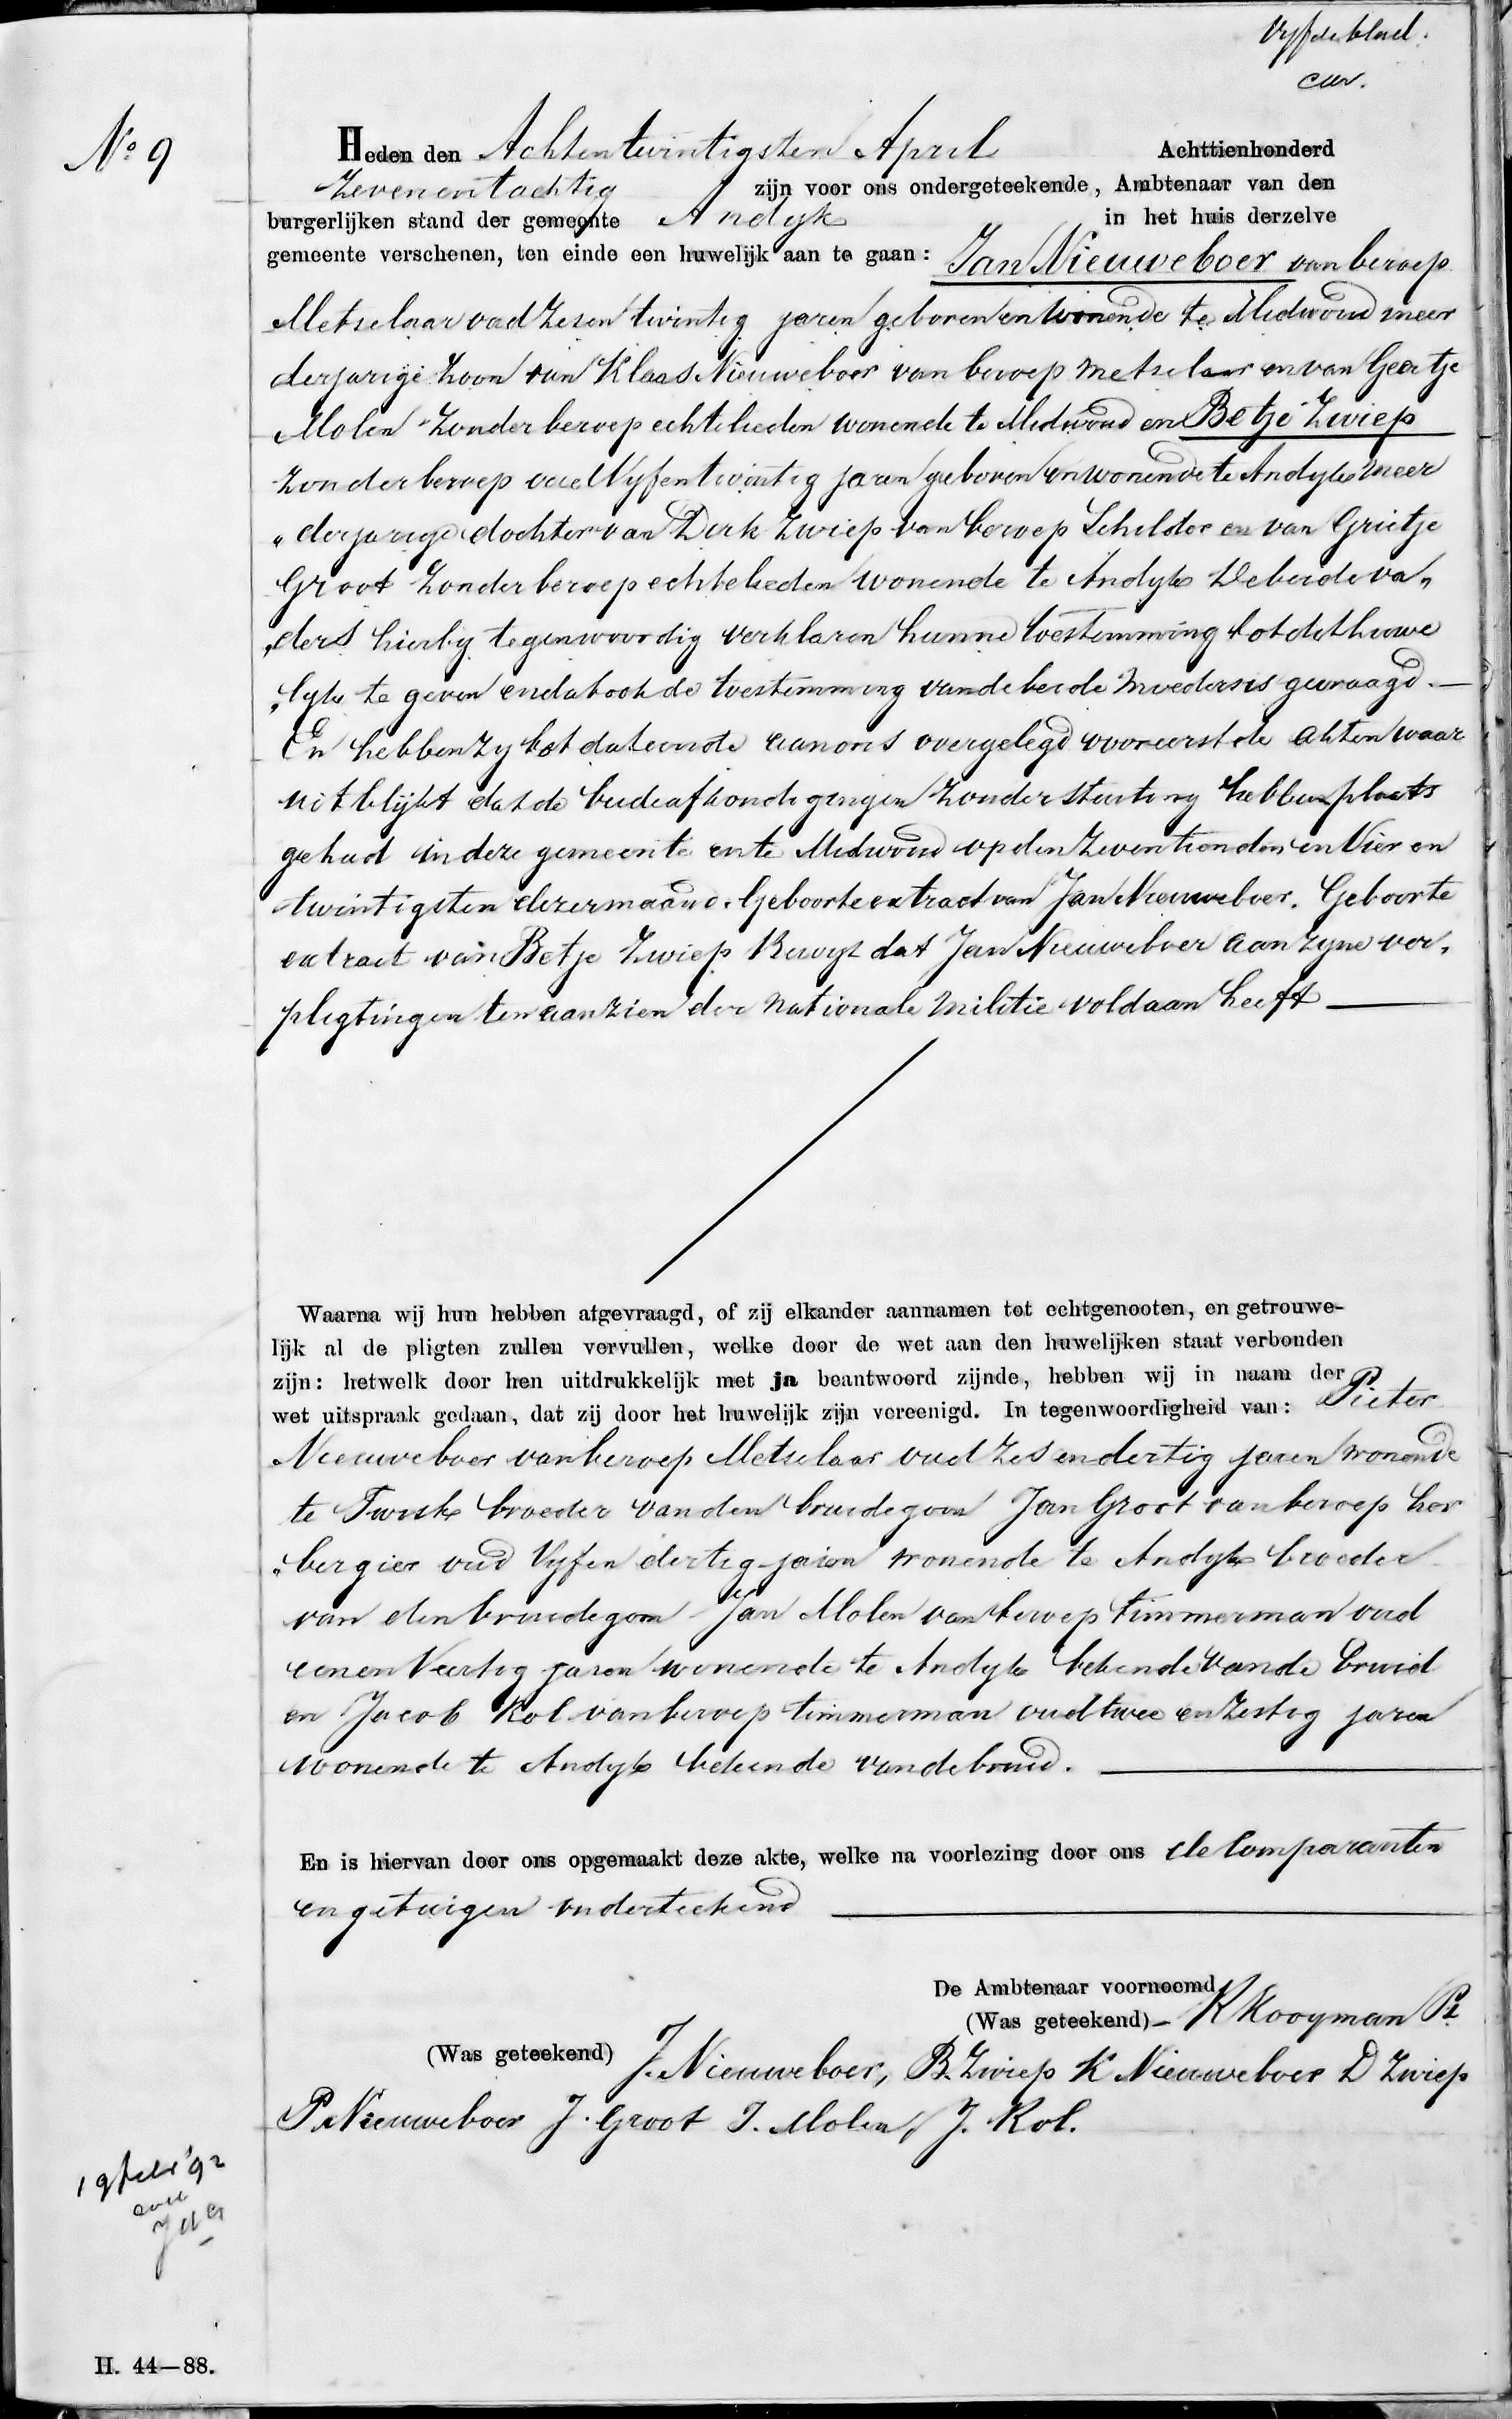 Vyfde blad.
N° 9
Heden den Achtentwintigsten April Achttienhonderd
Zevenentachtig zijn voor ons ondergeteekende, Ambtenaar van den
burgerlijken stand der gemeente Andyk in het huis derzelve
gemeente verschenen, ten einde een huwelijk aan te gaan: Jan Nieuweboer van beroep
Metselaar oud Zesen twintig jaren geboren en wonende te Midwoud meer
derjarige Zoon van Klaas Nieuweboer van beroep metselaar en van Geertje
Molen Zonder beroep echtelieden wonende te Midwoud en Betje Zwiep
Zonder beroep oud Vyfentwintig jaren geboren en wonende te Andyk meer
„derjarige dochter van Dirk Zwiep van beroep Schilder en van Grietje
Groot Zonder beroep echtelieden wonende te Andyk De beide va„
„ders hierby tegenwoordig verklaren hunne toestemming tot dit huwe
„lyk te geven en dat ook de toestemming van de beide moeders is gevraagd.—
En hebben zy tot dat einde aan ons overgelegd vooreerst de akten waar
uit blijkt dat de beide afkondigingen Zonder stuiting hebben plaats
gehad in deze gemeente en te Midwoud op den Zeventienden en Vier en
twintigsten dezer maand. Geboorte extract van Jan Nieuweboer. Geboorte
extract van Betje Zwiep Bewys dat Jan Nieuweboer aan zyne ver„
pligtingen ten aanzien der Nationale Militie voldaan heeft —
Waarna wij hun hebben afgevraagd, of zij elkander aannamen tot echtgenooten, en getrouwe-
lijk al de pligten zullen vervullen, welke door de wet aan den huwelijken staat verbonden
zijn: hetwelk door hen uitdrukkelijk met ja beantwoord zijnde, hebben wij in naam der
wet uitspraak gedaan, dat zij door het huwelijk zijn vereenigd. In tegenwoordigheid van: Pieter
Nieuweboer van beroep Metselaar oud Zes en dertig jaren wonende
te Twisk broeder van den bruidegom Jan Groot van beroep her
„bergier oud Vyf en dertig jaren wonende te Andyk broeder
van den bruidegom Jan Molen van beroep timmerman oud
eenen Veertig jaren wonende te Andyk bekende van de bruid
en Jacob Kol van beroep timmerman oud twee en Zestig jaren
wonende te Andyk bekende van de bruid.
En is hiervan door ons opgemaakt deze akte, welke na voorlezing door ons de Comparanten
en getuigen onderteekend
De Ambtenaar voornoemd
(Was geteekend)— K Kooyman Pz
(Was geteekend) J. Nieuweboer, B. Zwiep K Nieuweboer D Zwiep
P. Nieuweboer J. Groot J. Molen, J. Kol.
19 febr '92
H. 44—88.